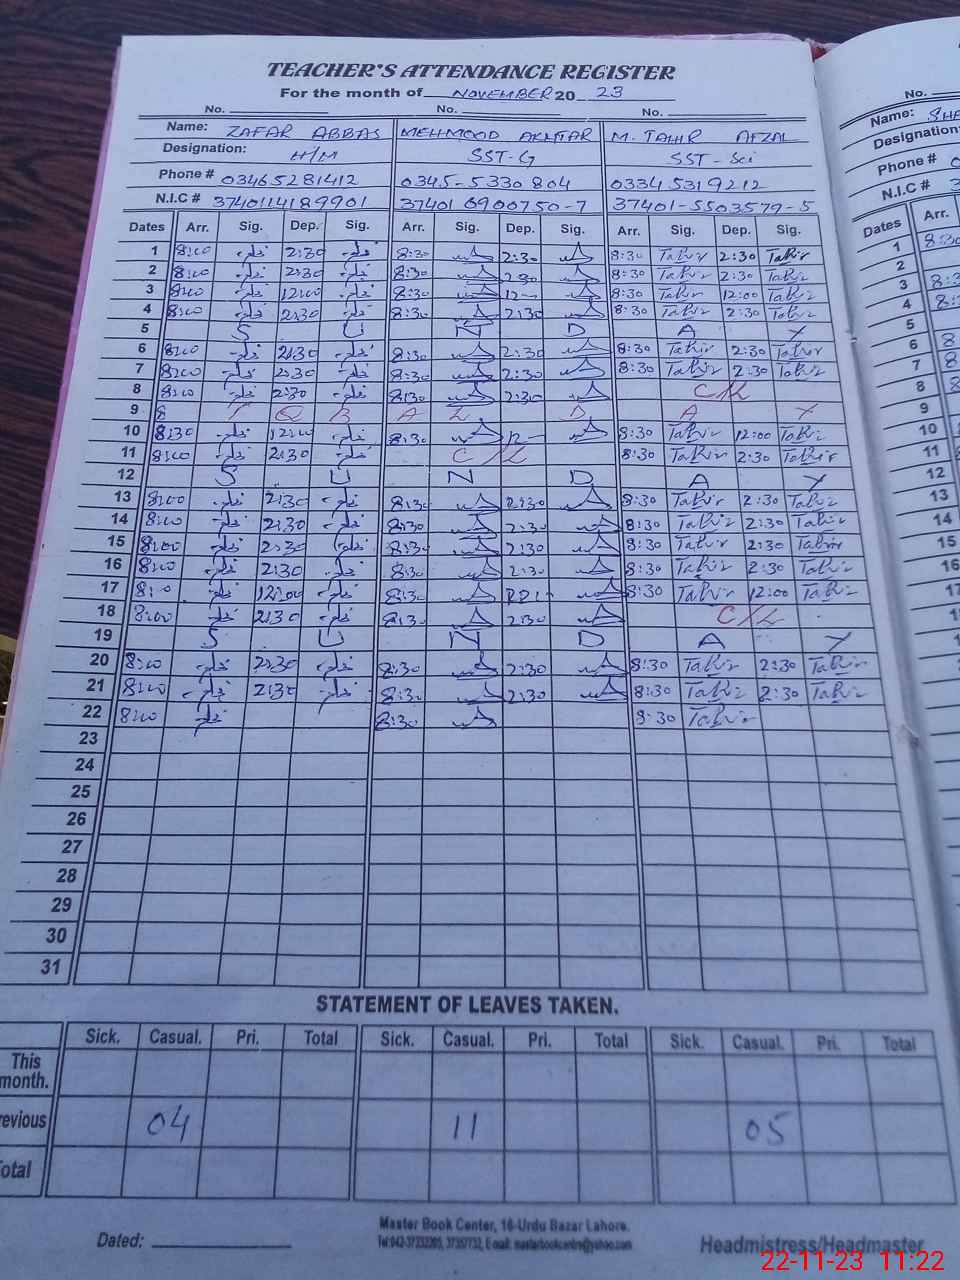 TEACHER'S ATTENDANCE REGISTER
For the month of NOVEMBER 20 23
No. No. No. No.
Name: ZAFAR ABBAS MEHMOOD AKHTAR M. TAHIR AFZAL Name:
Designation: H/M SST-G SST-Sci Designation
Phone # 03465281412 0345-5330804 03345319212 Phone #
N.I.C # 3740114189901 37401 6900750-7 37401-5503579-5 N.I.C #
Dates Arr. Sig. Dep. Sig. Arr. Sig. Dep. Sig. Arr. Sig. Dep. Sig. Dates Arr.
1 8:00 2:30 8:30 2:30 8:30 Tahir 2:30 Tahir 1
2 8:00 2:30 8:30 2:30 8:30 Tahir 2:30 Tahir 2
3 8:00 12:00 8:30 12- 8:30 Tahir 12:00 Tahir 3
4 8:00 2:30 8:30 2:30 8:30 Tahir 2:30 Tahir 4
5 S U N D A Y 5
6 8:00 2:30 8:30 2:30 8:30 Tahir 2:30 Tahir 6
7 8:00 2:30 8:30 2:30 8:30 Tahir 2:30 Tahir 7
8 8:00 2:30 8:30 2:30 C/L 8
9 I Q B A L D A Y 9
10 8:30 12:00 8:30 12- 8:30 Tahir 12:00 Tahir 10
11 8:00 2:30 C/L 8:30 Tahir 2:30 Tahir 11
12 S U N D A Y 12
13 8:00 2:30 8:30 2:30 8:30 Tahir 2:30 Tahir 13
14 8:00 2:30 8:30 2:30 8:30 Tahir 2:30 Tahir 14
15 8:00 2:30 8:30 2:30 8:30 Tahir 2:30 Tahir 15
16 8:00 2:30 8:30 2:30 8:30 Tahir 2:30 Tahir 16
17 8:00 12:00 8:30 8:30 Tahir 12:00 Tahir
18 8:00 2:30 8:30 2:30 C/L
19 S U N D A Y
20 8:00 2:30 8:30 2:30 8:30 Tahir 2:30 Tahir
21 8:00 2:30 8:30 2:30 8:30 Tahir 2:30 Tahir
22 8:00 8:30 8:30 Tahir
23
24
25
26
27
28
29
30
31
STATEMENT OF LEAVES TAKEN.
Sick. Casual. Pri. Total Sick. Casual. Pri. Total Sick. Casual. Pri. Total
This month.
revious 04 11 05
otal
Master Book Center, 16-Urdu Bazar Lahore.
Dated: Headmistress/Headmaster
22-11-23 11:22